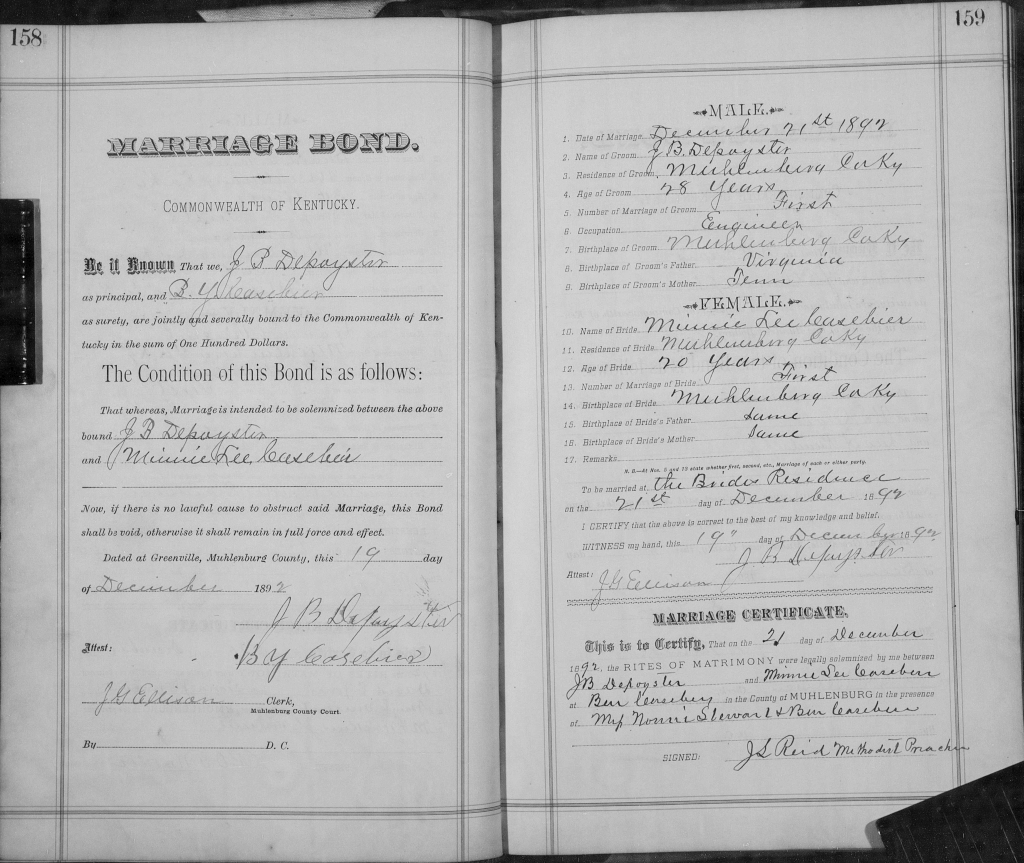 158
MARRIAGE BOND.
COMMONWEALTH OF KENTUCKY.
Be it Known That we, J B Depoyster
as principal, and B. Y Casebier
as surety, are jointly and severally bound to the Commonwealth of Ken-
tucky in the sum of One Hundred Dollars.
The Condition of this Bond is as follows:
That whereas, Marriage is intended to be solemnized between the above
bound J B Depoyster
and Minnie Lee Casebier
Now, if there is no lawful cause to obstruct said Marriage, this Bond
shall be void, otherwise it shall remain in full force and effect.
Dated at Greenville, Muhlenburg County, this 19 day
of December 1892
J B Depoyster
Attest: B Y Casebier
J G Ellison Clerk,
Muhlenburg County Court.
By D. C.
159
MALE.
1. Date of Marriage December 21st 1892
2. Name of Groom J B. Depoyster
3. Residence of Groom, Muhlenberg Co Ky
4. Age of Groom 28 Years
5. Number of Marriage of Groom First
6. Occupation Engineer
7. Birthplace of Groom, Muhlenberg Co Ky
8. Birthplace of Groom's Father Virginia
9. Birthplace of Groom's Mother Tenn
FEMALE.
10. Name of Bride Minnie Lee Casebier
11. Residence of Bride Muhlenberg Co Ky
12. Age of Bride 20 Years
13. Number of Marriage of Bride First
14. Birthplace of Bride Muhlenberg Co Ky
15. Birthplace of Bride's Father Same
16. Birthplace of Bride's Mother Same
17. Remarks
N. B.—At Nos. 5 and 13 state whether first, second, etc., Marriage of each or either party.
To be married at the Brides Residence
on the 21st day of December 1892
I CERTIFY that the above is correct to the best of my knowledge and belief.
WITNESS my hand, this 19" day of December 1892
J B Depoyster
Attest: J G Ellison
MARRIAGE CERTIFICATE.
This is to Certify, That on the 21 day of December
1892, the RITES OF MATRIMONY were legally solemnized by me between
J B Depoyster and Minnie Lee Casebier
at Ben Casebiers in the County of MUHLENBURG in the presence
of Nonnie Stewart & Ben Casebier
SIGNED: J L Reid Methodist Preacher